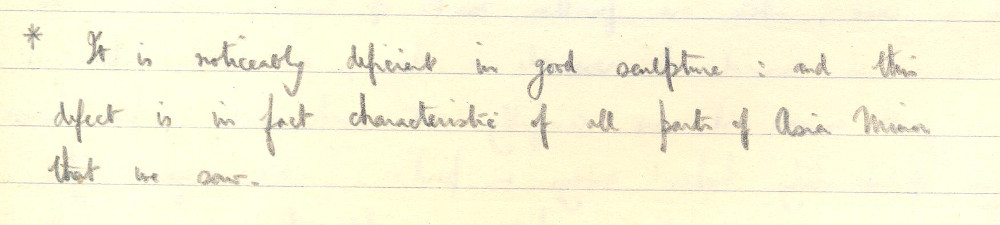 * It is noticeably deficient in good sculpture : and this
defect is in fact characteristic of all parts of Asia Minor
that we saw.